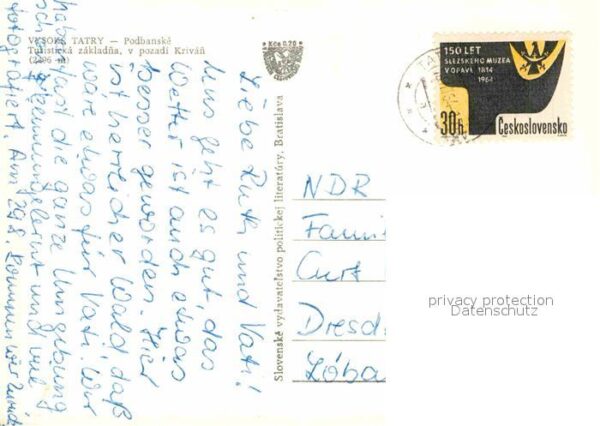 VYSOKÉ TATRY — Podbanské
Turistická základňa, v pozadí Kriváň
(2496 m)
Kčs 0,20
Slovenské vydavateľstvo politickej literatúry, Bratislava
150 LET
SLEZSKÉHO MUZEA
V OPAVĚ 1814
1964
30h Československo
Liebe Ruth und Vati!
Uns geht es gut, das
Wetter ist auch etwas
besser geworden. Hier
ist herrlicher Wald, daß
wäre etwas für Vati. Wir
haben fast die ganze Umgebung
schon kennengelernt und viel
fotografiert. Am 29.8. kommen wir zurück
NDR
Famil
Curt
Dresd
Löba
privacy protection
Datenschutz